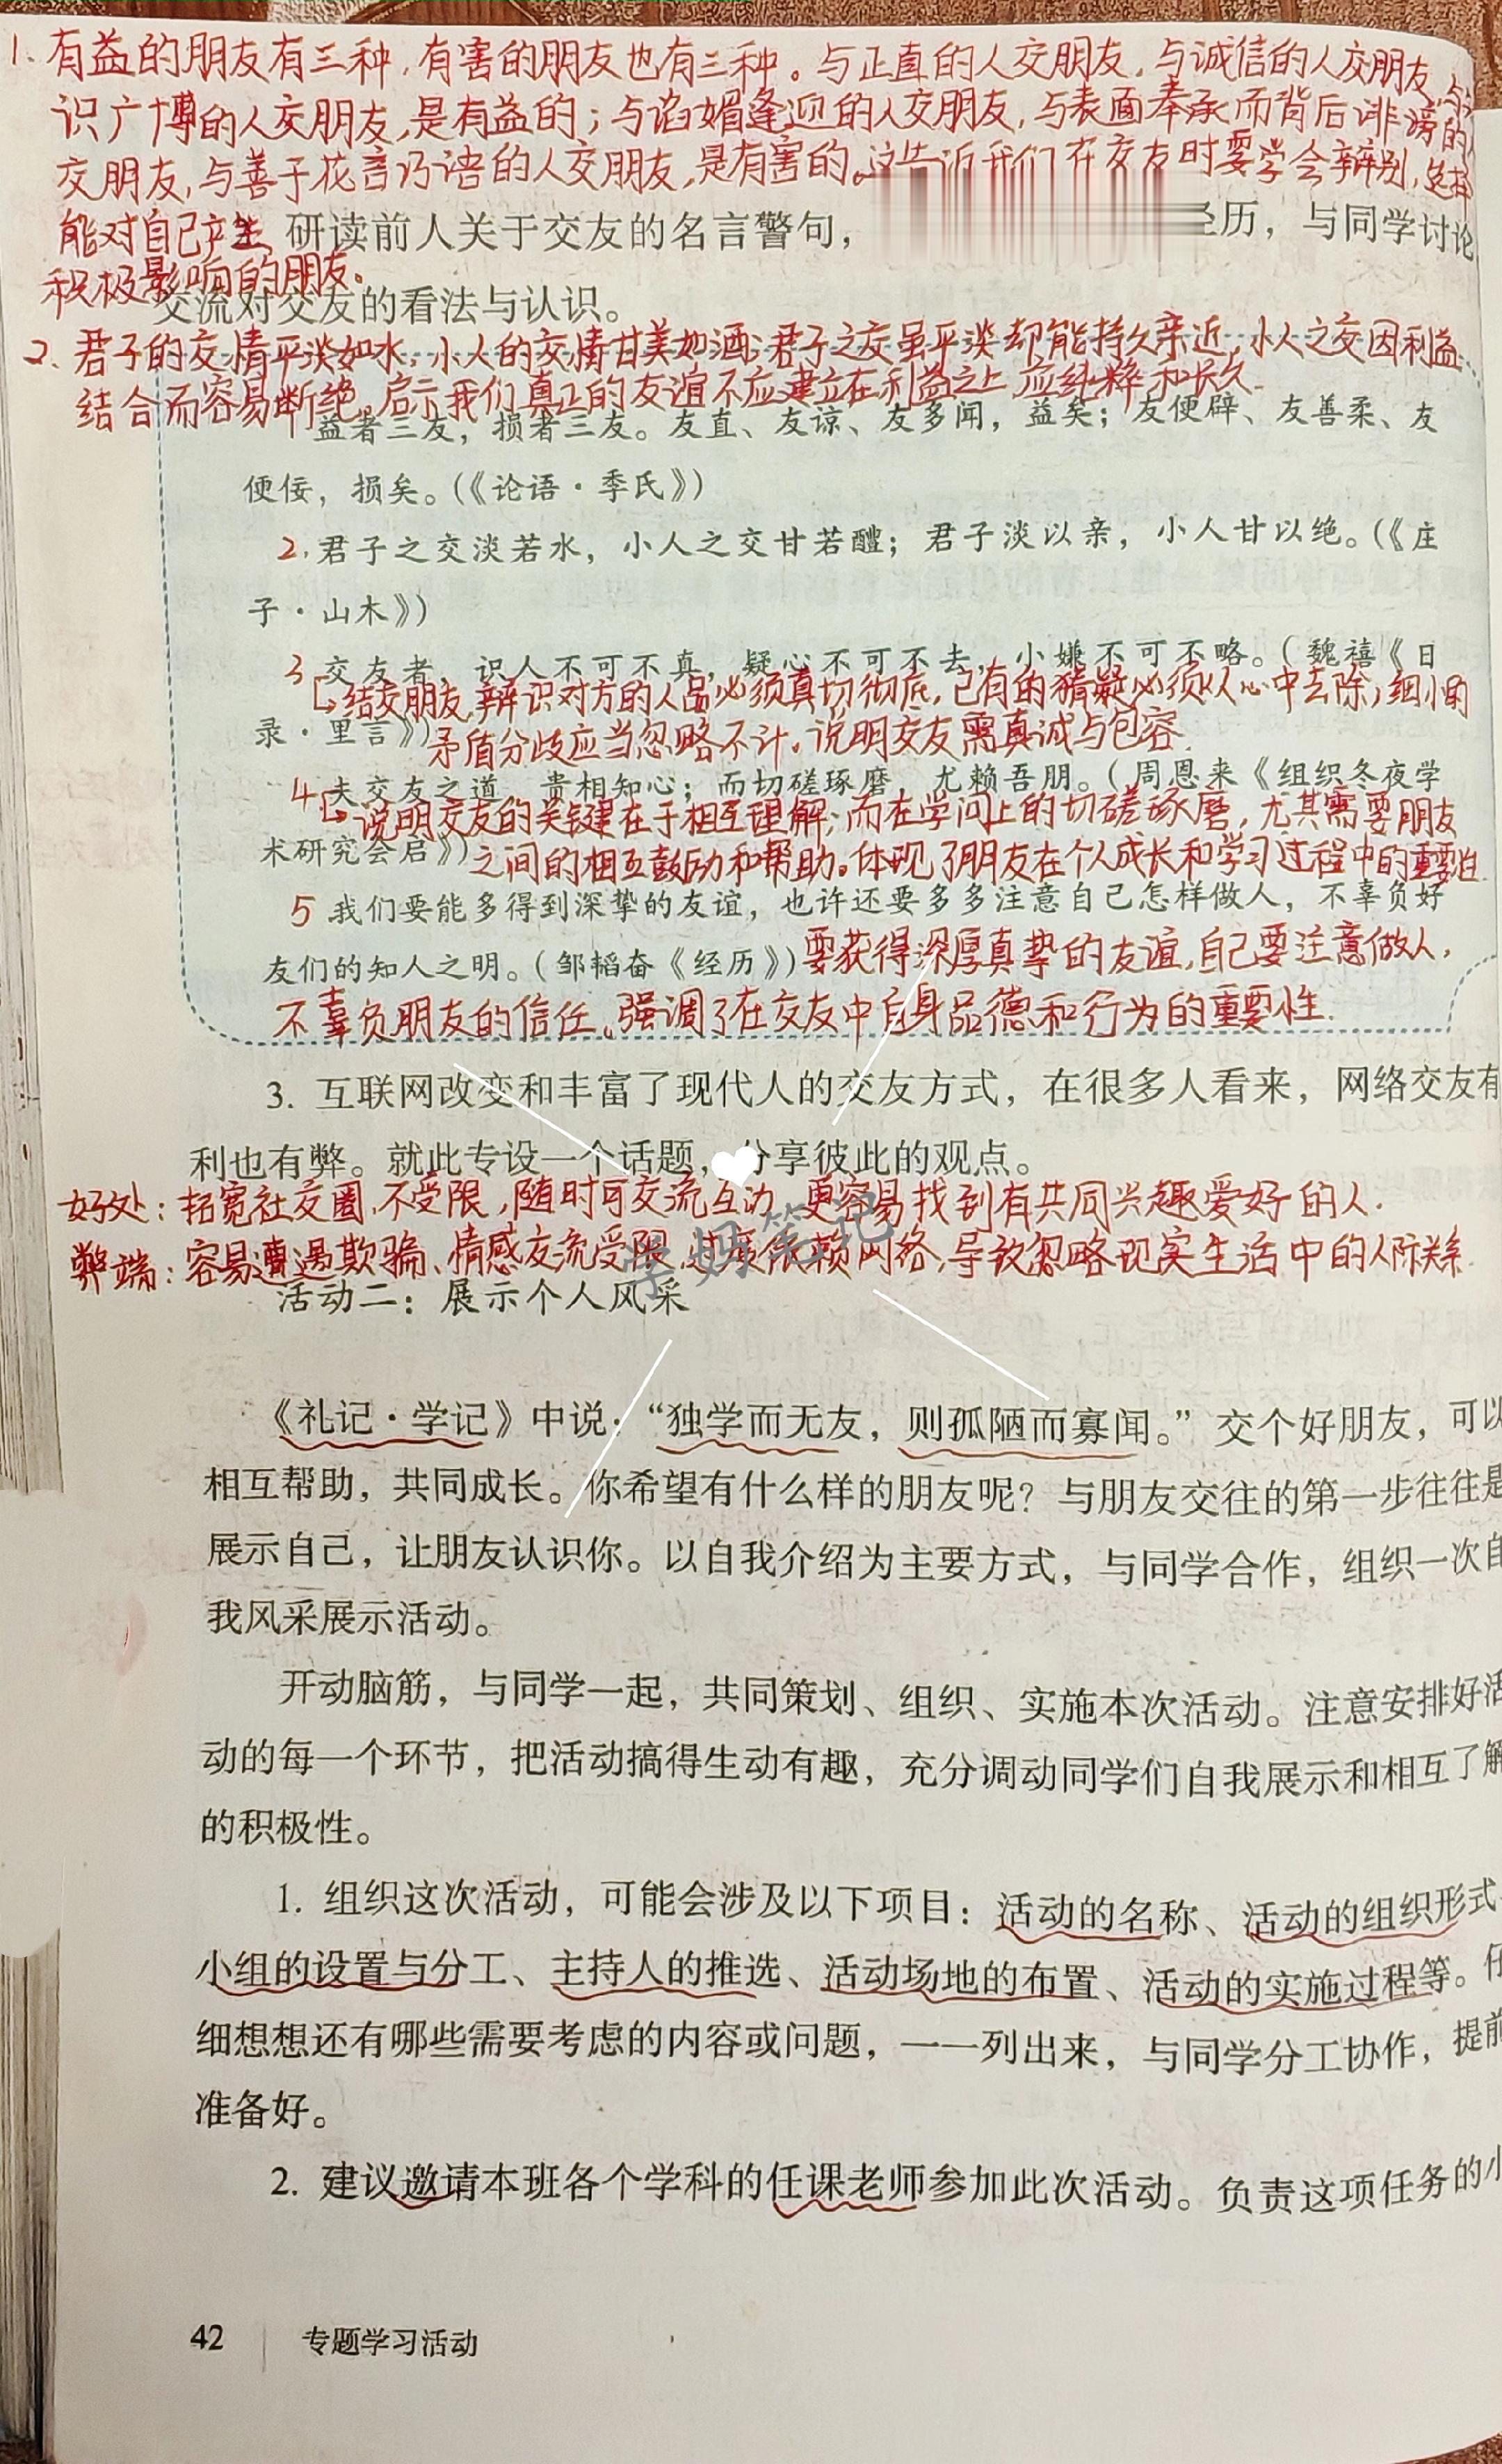 1. 有益的朋友有三种,有害的朋友也有三种。与正直的人交朋友,与诚信的人交朋友,与
识广博的人交朋友,是有益的;与谄媚逢迎的人交朋友,与表面奉承而背后诽谤的
交朋友,与善于花言巧语的人交朋友,是有害的。这告诉我们在交友时要学会辨别,选择
能对自己产生
研读前人关于交友的名言警句,
经历,与同学讨论
积极影响的朋友。
交流对交友的看法与认识。
2. 君子的交情平淡如水,小人的交情甘美如酒;君子之交虽平淡却能持久亲近,小人之交因利益
结合而容易断绝。启示我们真正的友谊不应建立在利益之上,应纯粹和长久.
益者三友,损者三友。友直、友谅、友多闻,益矣;友便辟、友善柔、友
便佞,损矣。(《论语·季氏》)
2. 君子之交淡若水,小人之交甘若醴;君子淡以亲,小人甘以绝。(《庄
子·山木》)
3 交友者,识人不可不真,疑心不可不去,小嫌不可不略。(魏禧《日
结交朋友,辨识对方的人品必须真切彻底,已有的猜疑必须从心中去除,细小的
录·里言》)
矛盾分歧应当忽略不计。说明交友需真诚与包容.
4 夫交友之道,贵相知心;而切磋琢磨,尤赖吾朋。(周恩来《组织冬夜学
说明交友的关键在于相互理解;而在学问上的切磋琢磨,尤其需要朋友
术研究会启》)
之间的相互鼓励和帮助。体现了朋友在个人成长和学习过程中的重要性.
5 我们要能多得到深挚的友谊,也许还要多多注意自己怎样做人,不辜负好
友们的知人之明。(邹韬奋《经历》)
要获得深厚真挚的友谊,自己要注意做人,
不辜负朋友的信任。强调了在交友中自身品德和行为的重要性.
3. 互联网改变和丰富了现代人的交友方式,在很多人看来,网络交友有
利也有弊。就此专设一个话题,分享彼此的观点。
好处:拓宽社交圈,不受限,随时可交流互动,更容易找到有共同兴趣爱好的人.
弊端:容易遭遇欺骗、情感交流受限,过度依赖网络,导致忽略现实生活中的人际关系.
学妈笔记
活动二:展示个人风采
《礼记·学记》中说:“独学而无友,则孤陋而寡闻。”交个好朋友,可以
相互帮助,共同成长。你希望有什么样的朋友呢?与朋友交往的第一步往往是
展示自己,让朋友认识你。以自我介绍为主要方式,与同学合作,组织一次自
我风采展示活动。
开动脑筋,与同学一起,共同策划、组织、实施本次活动。注意安排好活
动的每一个环节,把活动搞得生动有趣,充分调动同学们自我展示和相互了解
的积极性。
1. 组织这次活动,可能会涉及以下项目:活动的名称、活动的组织形式、
小组的设置与分工、主持人的推选、活动场地的布置、活动的实施过程等。仔
细想想还有哪些需要考虑的内容或问题,一一列出来,与同学分工协作,提前
准备好。
2. 建议邀请本班各个学科的任课老师参加此次活动。负责这项任务的小
42 专题学习活动